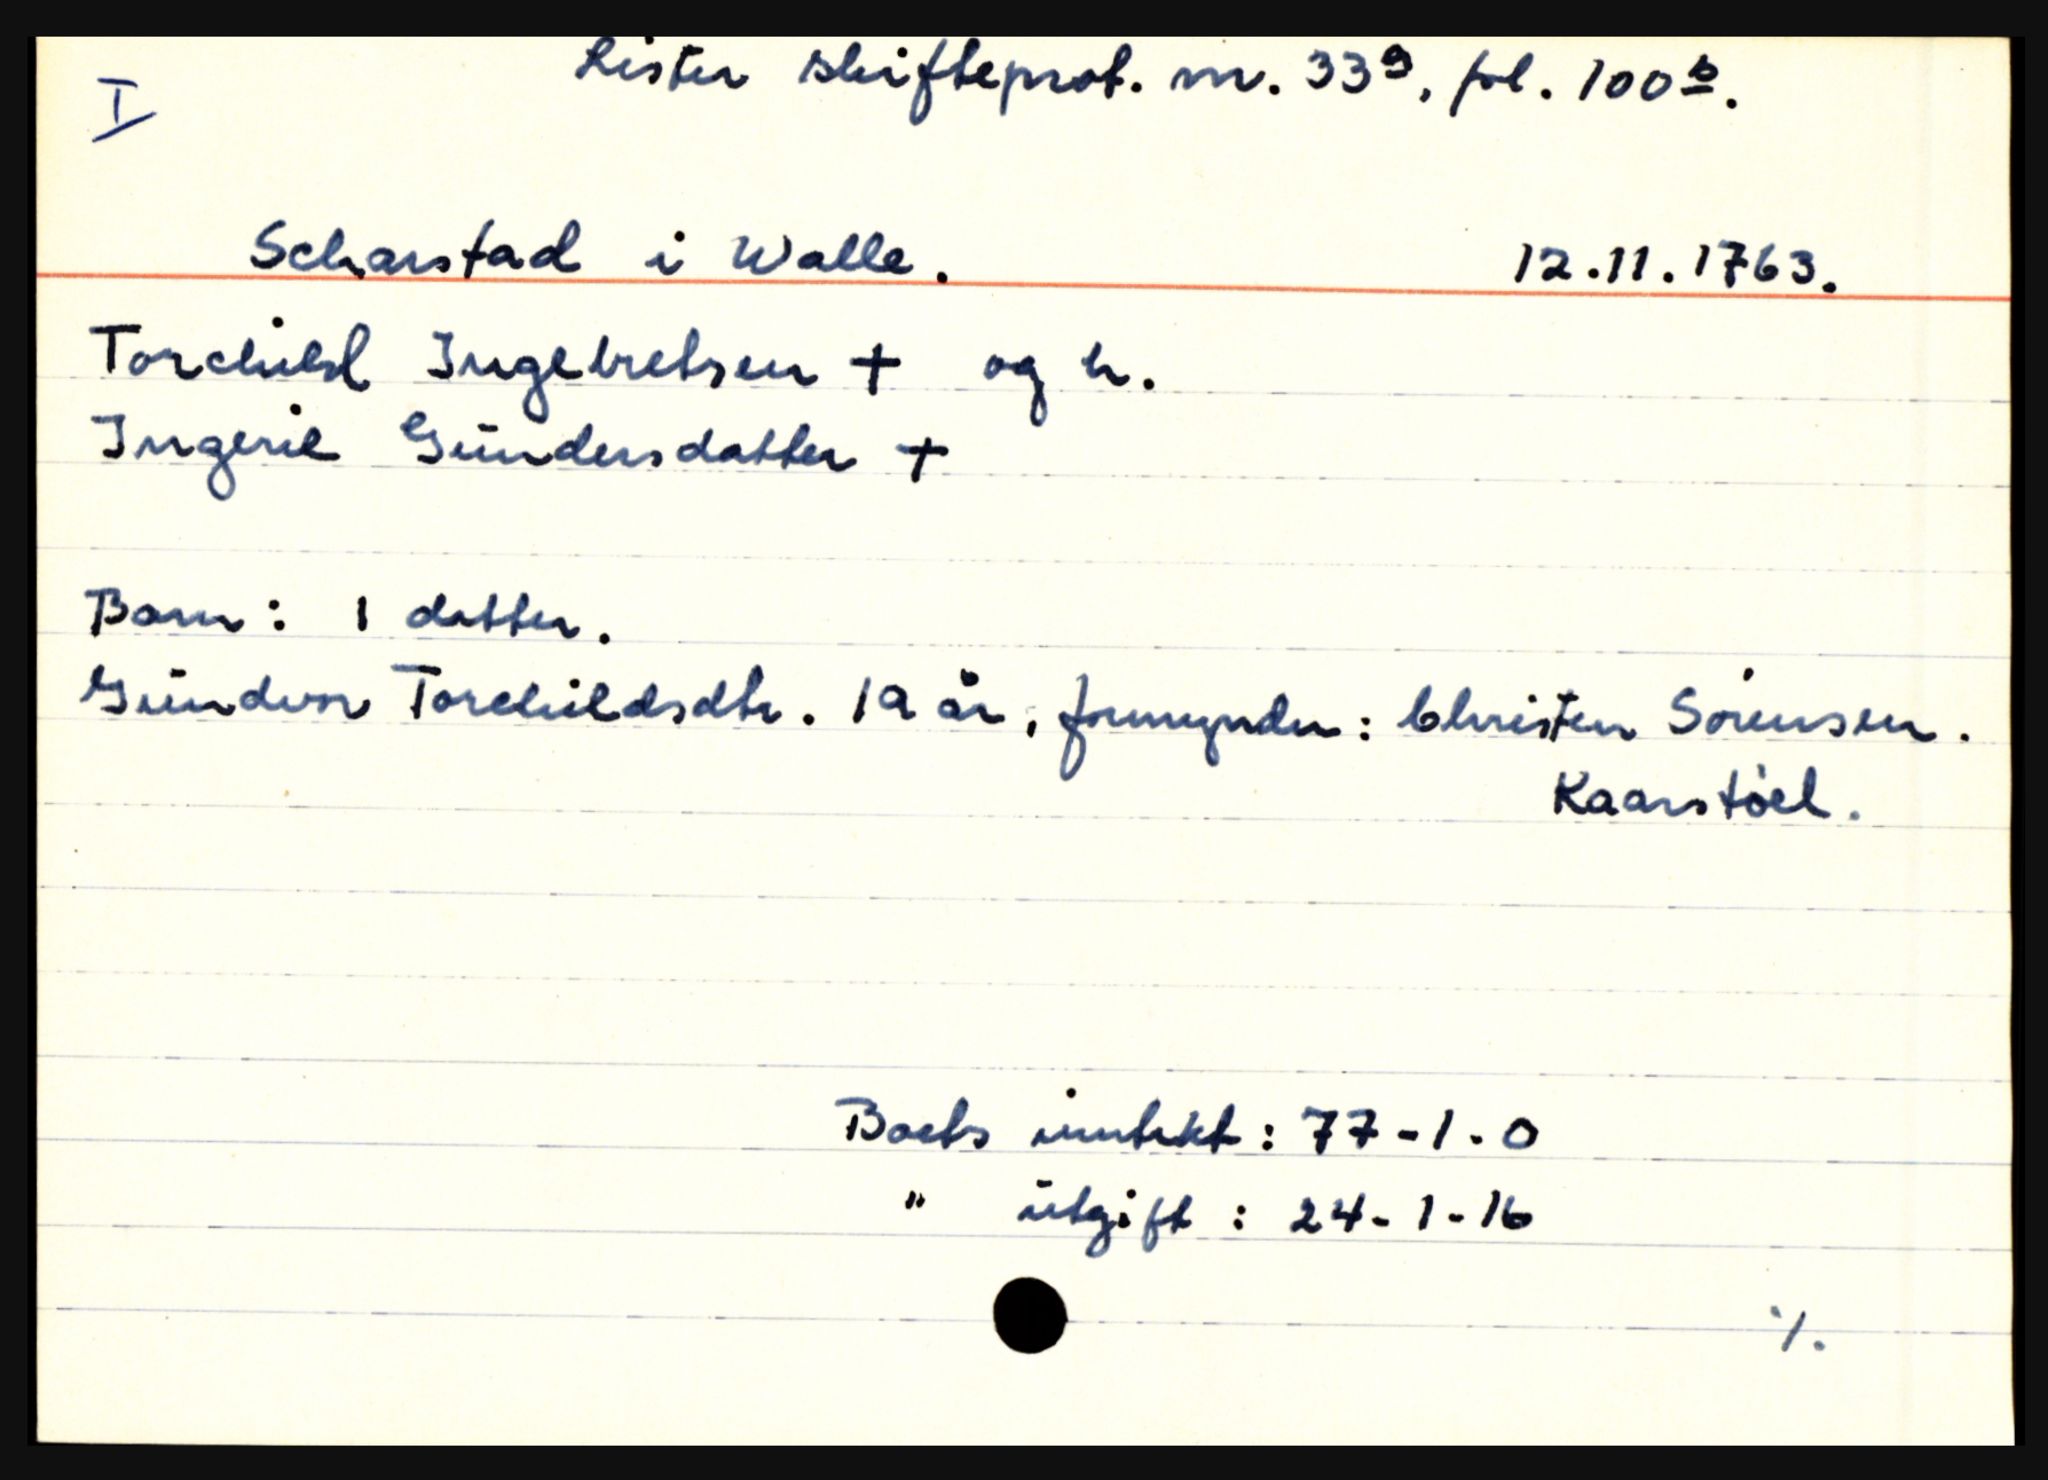 I
Lister skifteprot. nr. 33a, fol. 100b.
Scharstad i Walle. 12.11.1763.
Torchild Ingebretsen + og h.
Ingerie Gundersdatter +
Barn: 1 datter.
Gundvor Torchildsdtr. 19 år, formynder: Christen Sørensen.
Kaarstøel.
Boets inntekt: 77-1-0
" utgift: 24-1-16
./.